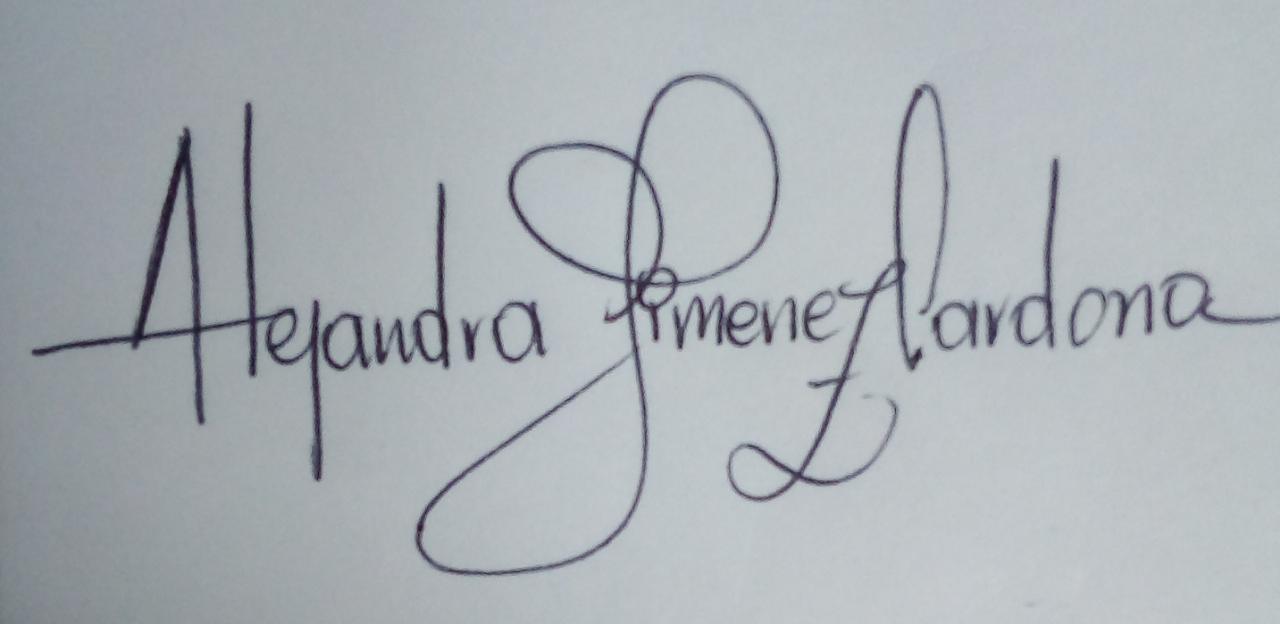 Alejandra Jimenez Cardona